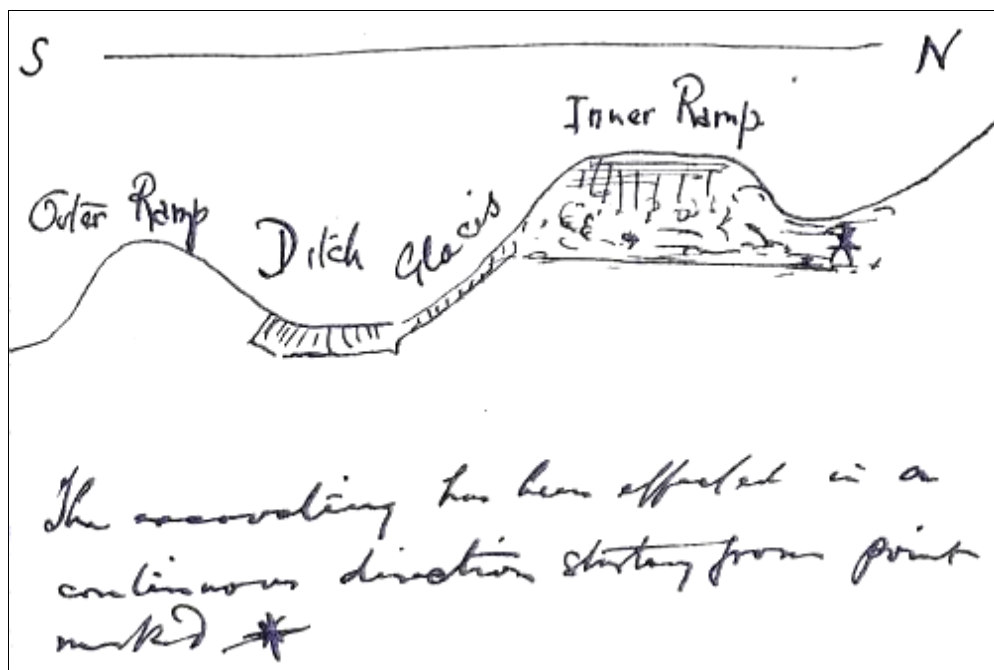 S N
Inner Ramp
Outer Ramp
Ditch Glacis
The excavating has been effected in a
continuous direction starting from point
marked *